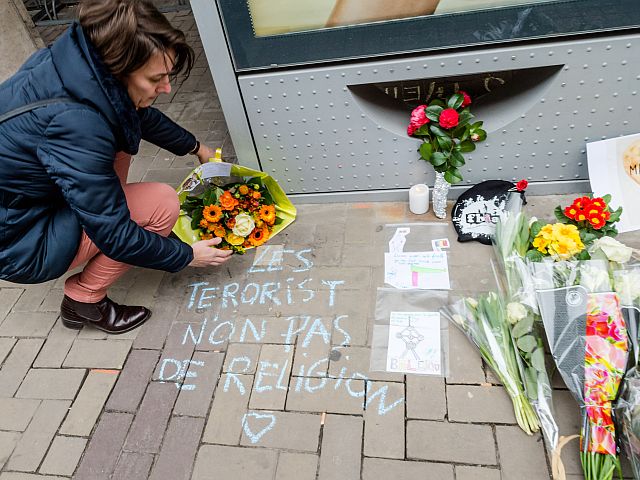 LES
TERORIST
NON PAS
DE RELIGION